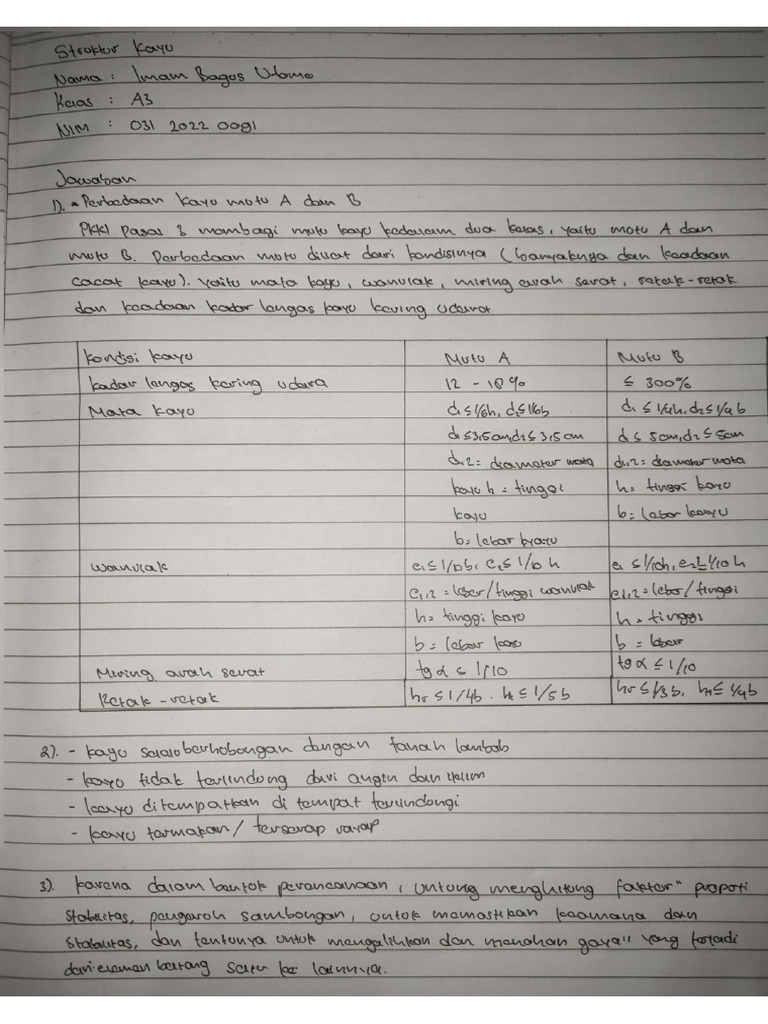 Struktur Kayu
Nama : Imam Bagus Utomo
Kelas : A3
NIM : 031 2022 0091
Jawaban
1). • Perbedaan kayu mutu A dan B
PKKI Pasal 3 membagi mutu kayu kedalam dua kelas, yaitu mutu A dan
mutu B. Perbedaan mutu dilihat dari kondisinya (banyaknya dan keadaan
cacat kayu). yaitu mata kayu, wanvlak, miring arah serat, retak-retak
dan keadaan kadar lengas kayu kering udara
Kondisi kayu Mutu A Mutu B
Kadar lengas kering udara 12 - 18% ≤ 300%
Mata kayu d₁ ≤ 1/6h, d₂ ≤ 1/6b d₁ ≤ 1/4h, d₂ ≤ 1/4 b
d₁ ≤ 3,5cm, d₂ ≤ 3,5 cm d₁ ≤ 5cm, d₂ ≤ 5cm
d₁,2 = diameter mata d₁,2 = diameter mata
kayu h = tinggi h = tinggi kayu
kayu b = lebar kayu
b = lebar kayu
wanvlak e₁ ≤ 1/10b, e₂ ≤ 1/10 h e₁ ≤ 1/10h, e₂ ≤ 1/10 h
e₁,2 = lebar/tinggi wanvlak e₁,2 = lebar/tinggi
h = tinggi kayu h = tinggi
b = lebar kayu b = lebar
Miring arah serat tg α ≤ 1/10 tg α ≤ 1/10
Retak-retak hr ≤ 1/4b . ht ≤ 1/5 b hr ≤ 1/3 b, ht ≤ 1/4 b
2). - kayu selalu berhubungan dengan tanah lembab
- kayu tidak terlindung dari angin dan iklim
- kayu ditempatkan di tempat terlindungi
- kayu termakan / terserap rayap
3). karena dalam bentuk perancanaan, untung menghitung faktor" propoti
stabilitas, pengaruh sambungan, untuk memastikan keamana dan
stabilitas, dan tentunya untuk mengalihkan dan menahan gaya" yang terjadi
dari elemen batang satu ke lainnya.